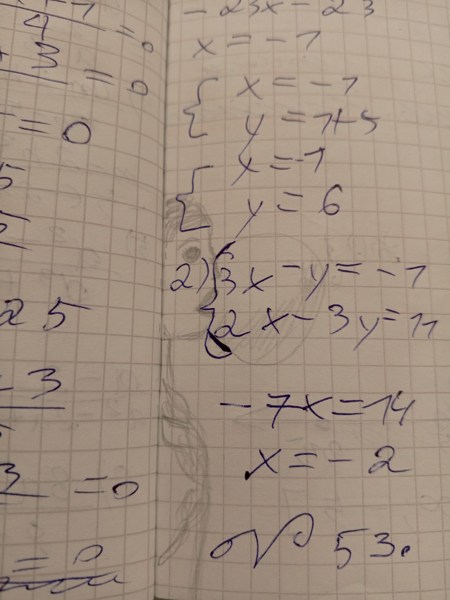 = 0
3
= 0
= 0
25
- 3
3 = 0
= 0
- 23x - 23
x = - 1
{ x = - 1
y = 1+5
{ x = -1
y = 6
2) { 3x - y = - 1
2x - 3y = 11
- 7x = 14
x = - 2
№ 53.